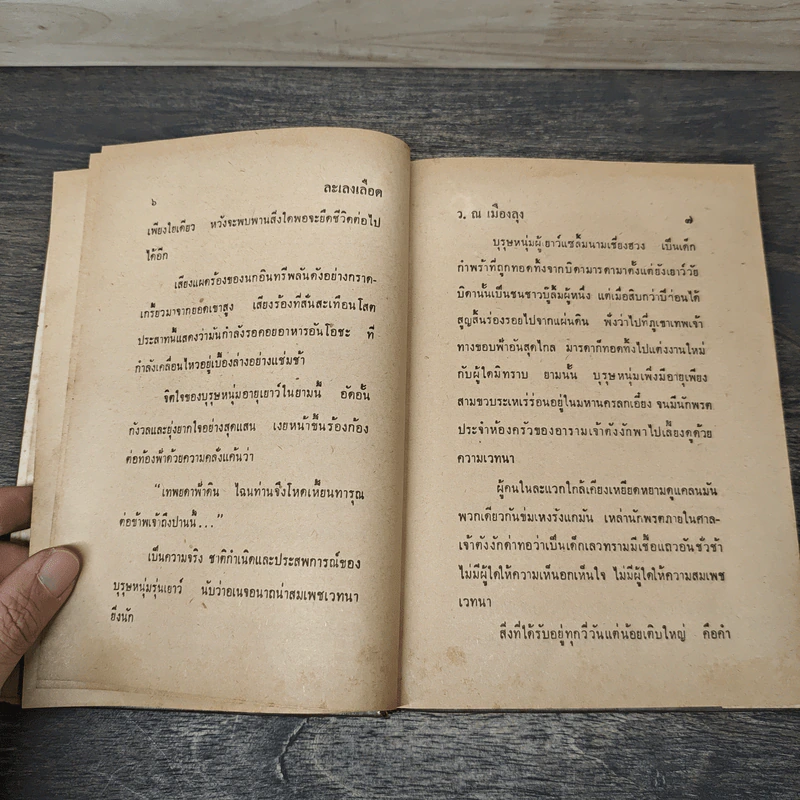 ๖
ละเลงเลือด
เพียงใยเดียว หวังจะพบพานสิ่งใดพอจะยืดชีวิตต่อไป
ได้อีก
เสียงแผดร้องของนกอินทรีพลันดังอย่างกราด-
เกรี้ยวมาจากยอดเขาสูง เสียงร้องที่สั่นสะเทือนโสต
ประสาทนี้แสดงว่ามันกำลังรอคอยอาหารอันโอชะ ที่
กำลังเคลื่อนไหวอยู่เบื้องล่างอย่างแช่มช้า
จิตใจของบุรุษหนุ่มอายุเยาว์ในยามนี้ อัดอั้น
กังวลและยุ่งยากใจอย่างสุดแสน เงยหน้าขึ้นร้องก้อง
ต่อท้องฟ้าด้วยความคลั่งแค้นว่า
“เทพยดาฟ้าดิน ไฉนท่านจึงโหดเหี้ยมทารุณ
ต่อข้าพเจ้าถึงปานนี้...”
เป็นความจริง ชาติกำเนิดและประสพการณ์ของ
บุรุษหนุ่มรุ่นเยาว์ นับว่าอเนจอนาถน่าสมเพชเวทนา
ยิ่งนัก
ว. ณ เมืองลุง
๗
บุรุษหนุ่มผู้เยาว์แซ่ลิ้มนามเซี่ยงฮวง เป็นเด็ก
กำพร้าที่ถูกทอดทิ้งจากบิดามารดามาตั้งแต่ยังเยาว์วัย
บิดานั้นเป็นชนชาวบู๊ลิ้มผู้หนึ่ง แต่เมื่อสิบกว่าปีก่อนได้
สูญสิ้นร่องรอยไปจากแผ่นดิน ฟังว่าไปที่ภูเขาเทพเจ้า
ทางขอบฟ้าอันสุดไกล มารดาก็ทอดทิ้งไปแต่งงานใหม่
กับผู้ใดมิทราบ ยามนั้น บุรุษหนุ่มเพิ่งมีอายุเพียง
สามขวบระเหเร่ร่อนอยู่ในมหานครลกเอี้ยง จนมีนักพรต
ประจำห้องครัวของอารามเจ้าตังงักพาไปเลี้ยงดูด้วย
ความเวทนา
ผู้คนในละแวกใกล้เคียงเหยียดหยามดูแคลนมัน
พวกเดียวกันข่มเหงรังแกมัน เหล่านักพรตภายในศาล-
เจ้าตังงักด่าทอว่าเป็นเด็กเลวทรามมีเชื้อแถวอันชั่วช้า
ไม่มีผู้ใดให้ความเห็นอกเห็นใจ ไม่มีผู้ใดให้ความสมเพช
เวทนา
สิ่งที่ได้รับอยู่ทุกวี่วันแต่น้อยเติบใหญ่ คือคำ